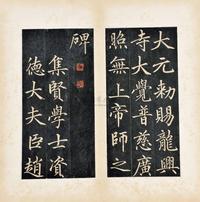 大元勑賜龍興
寺大覺普慈廣
照無上帝師之
碑
集賢學士資
德大夫臣趙